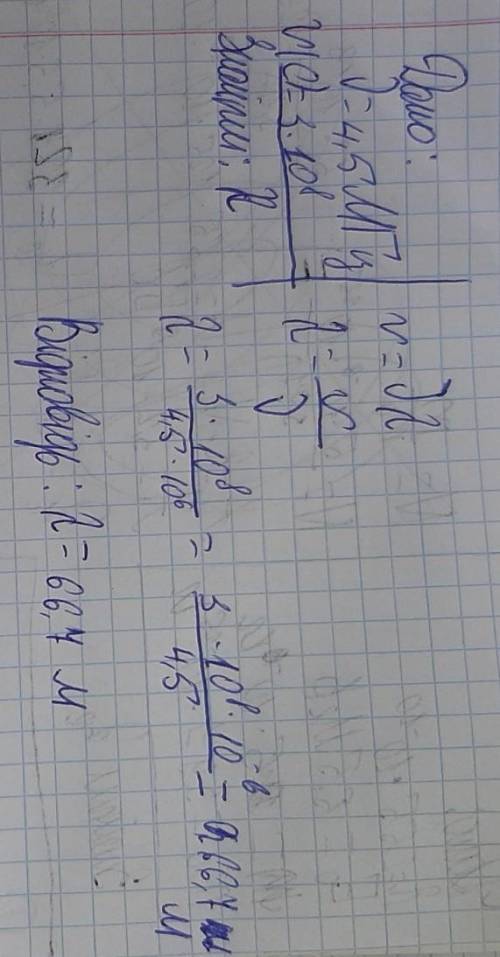 Дано:
ν = 4,5 МГц
υ(c) = 3 · 10⁸
Знайти: λ
υ = νλ
λ = υ/ν
λ = 3 · 10⁸ / 4,5 · 10⁶ = 3 · 10⁸ · 10⁻⁶ / 4,5 = 66,7 м
Відповідь: λ = 66,7 м